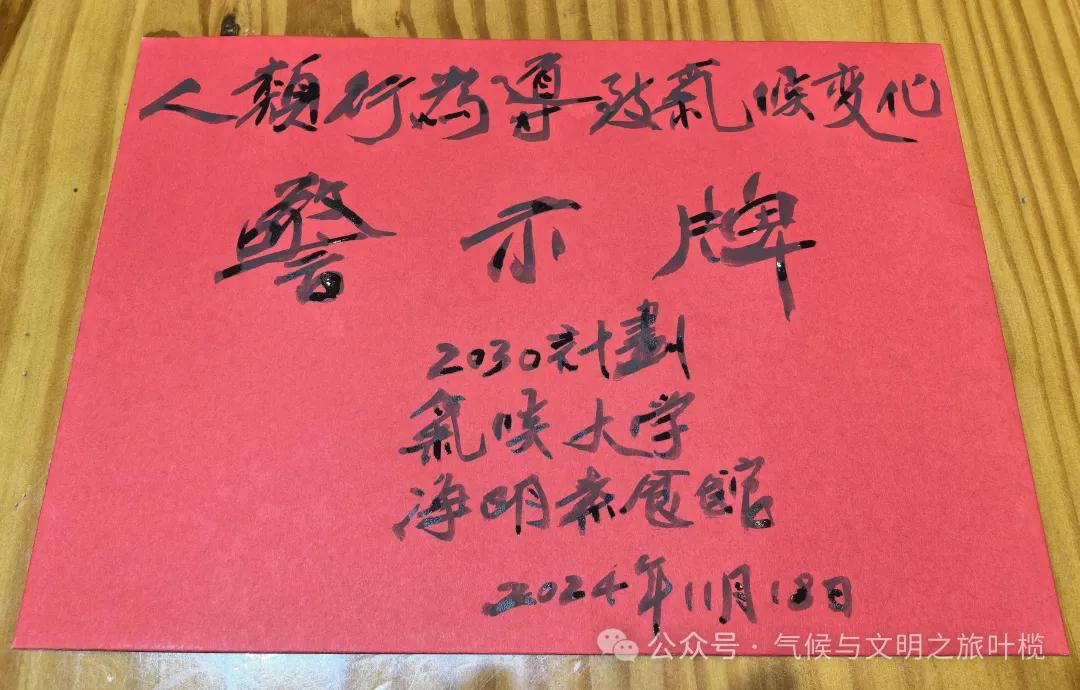 人類行為導致氣候变化
警示牌
2030计劃
氣候大学
净明素食館
2024年11月18日
公众号·气候与文明之旅叶榄